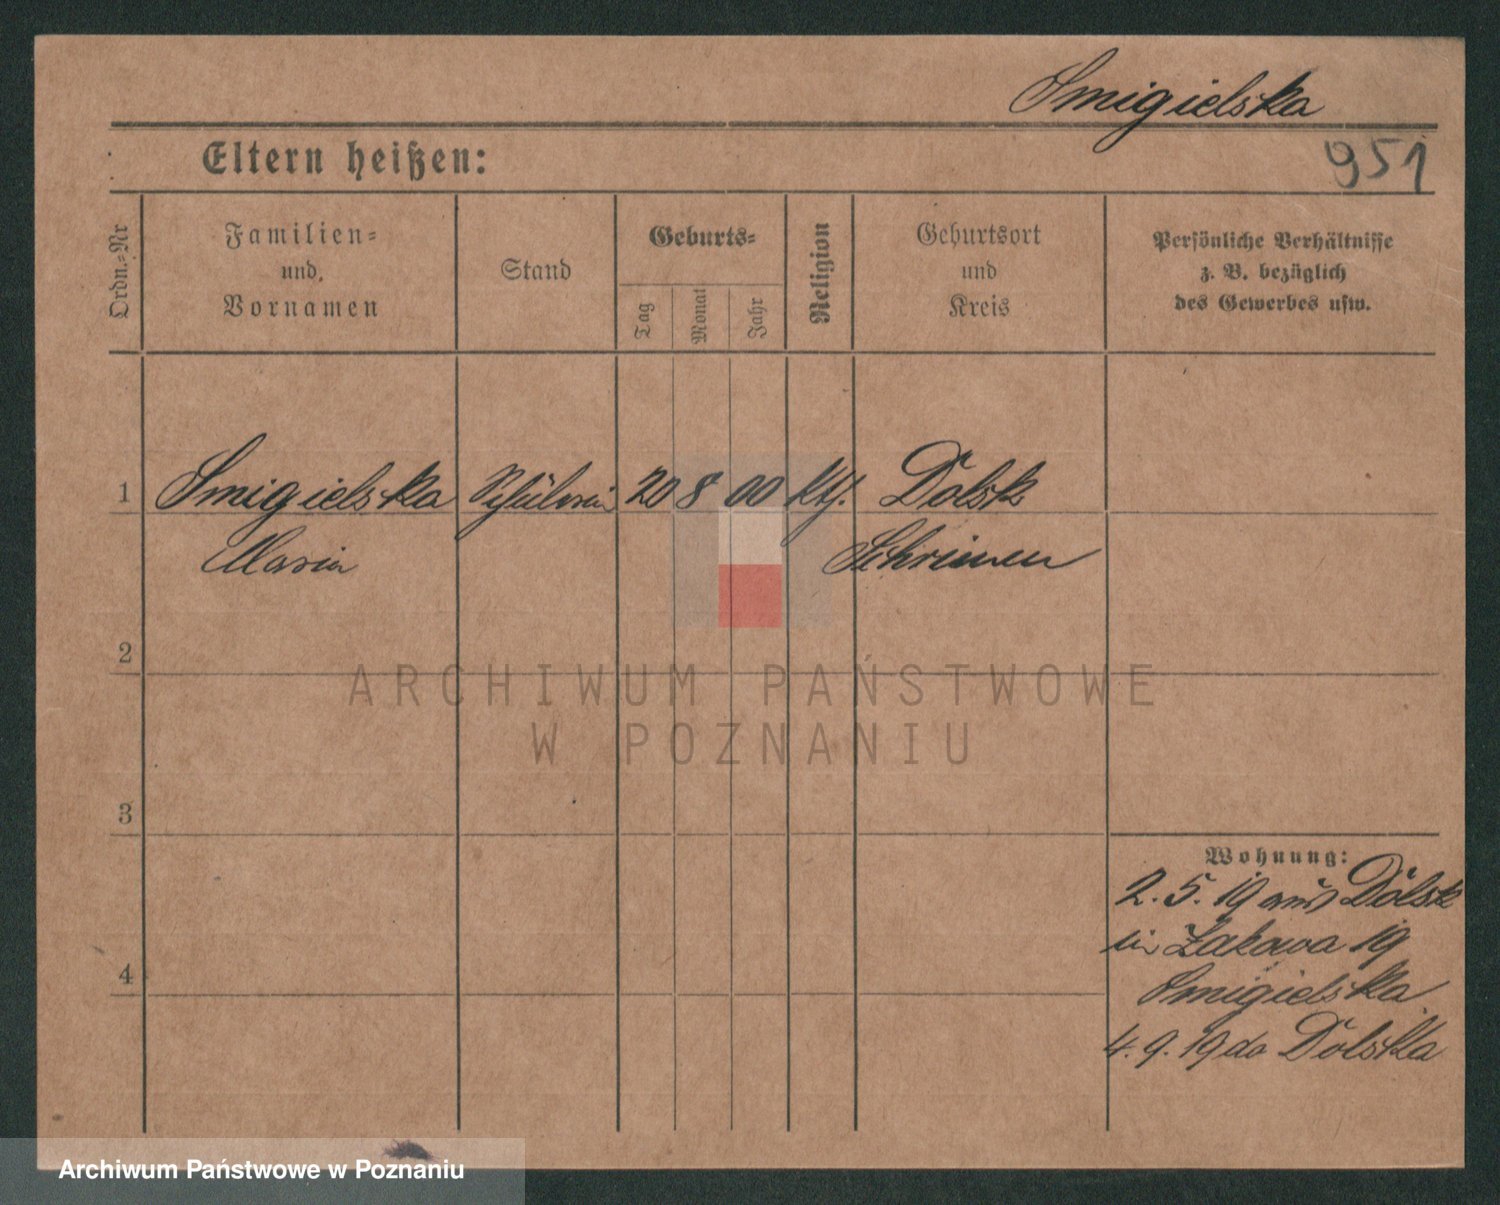 Smigielska
Eltern heißen:
951
Ordn.=Nr
Familien=
und
Vornamen
Stand
Geburts=
Tag
Monat
Jahr
Religion
Geburtsort
und
Kreis
Persönliche Verhältnisse
z. B. bezüglich
des Gewerbes usw.
1 Smigielska Schülerin 20 8 00 kth. Dolsk
Maria Schrimm
2
3
4
Wohnung:
2. 5. 19 aus Dolsk
in Żakowa 19
Smigielska
4. 9. 19 do Dolska
ARCHIWUM PAŃSTWOWE
W POZNANIU
Archiwum Państwowe w Poznaniu